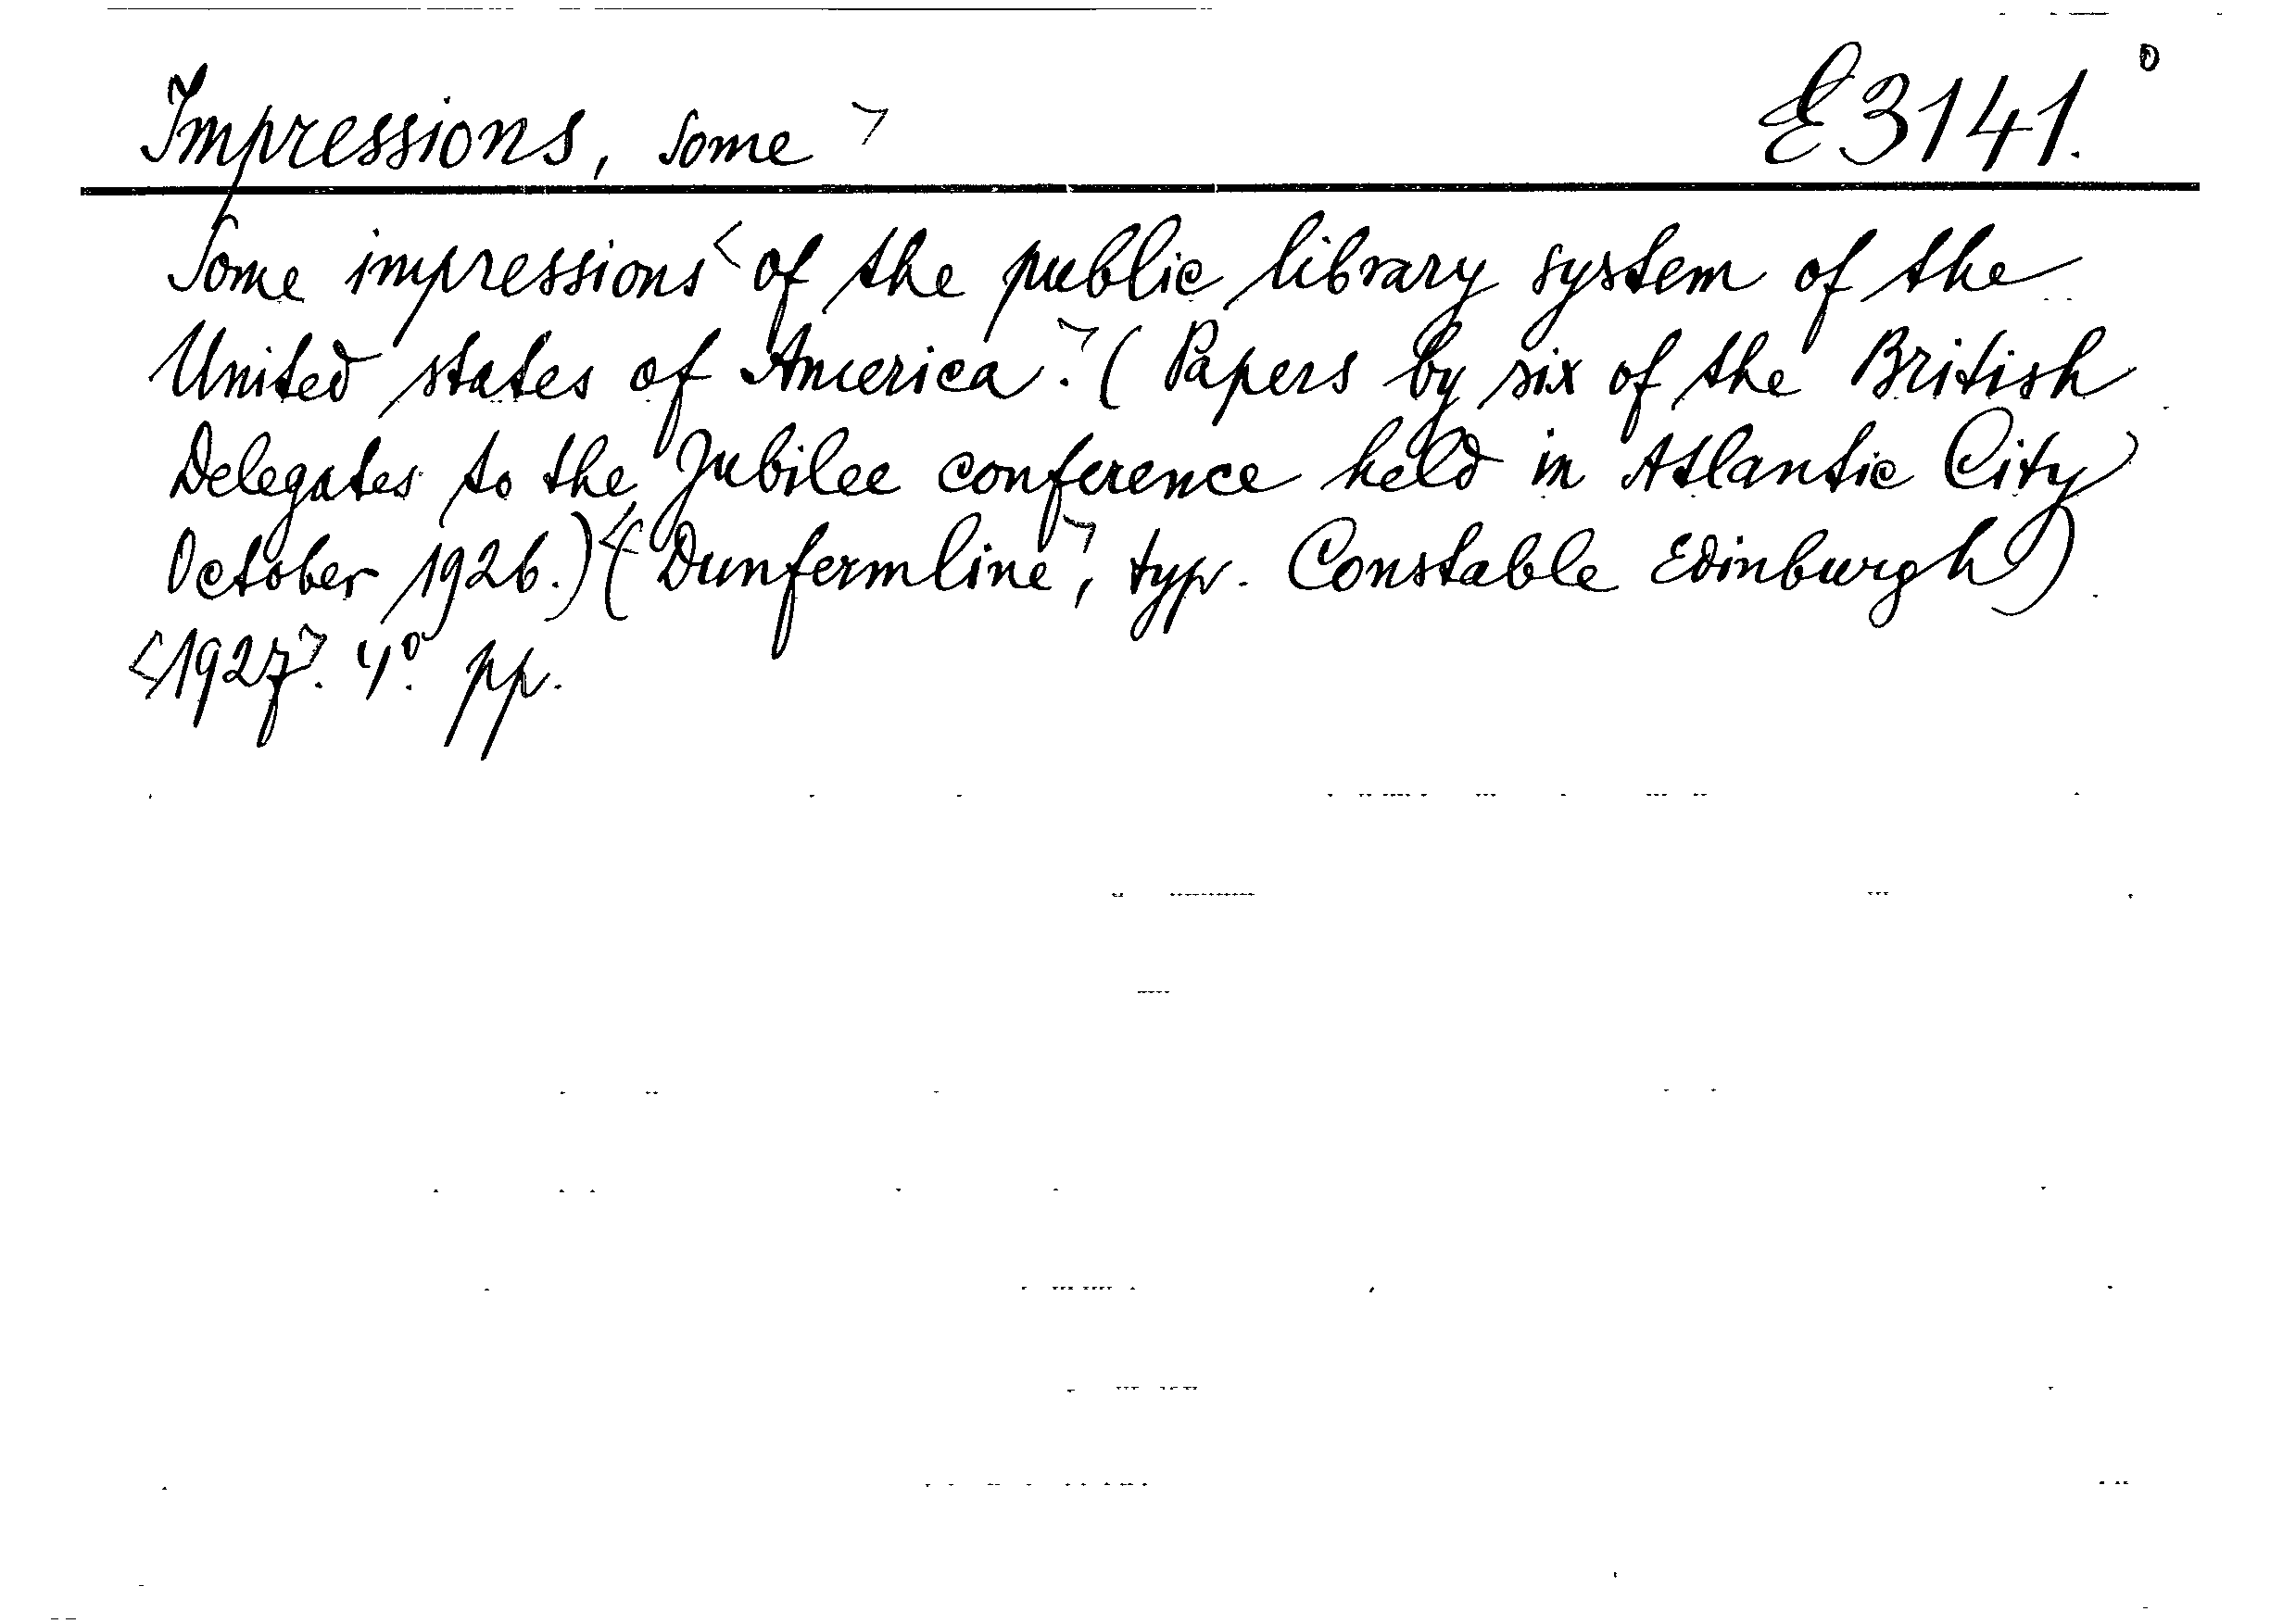 Impressions, some > E 3141.°
Some impressions < of the public library system of the
United states of America. > ( Papers by six of the British
Delegates to the Jubilee conference held in Atlantic City
October 1926.) < ( Dunfermline >, typ. Constable Edinburgh)
< 1927 >. 4°. pp.